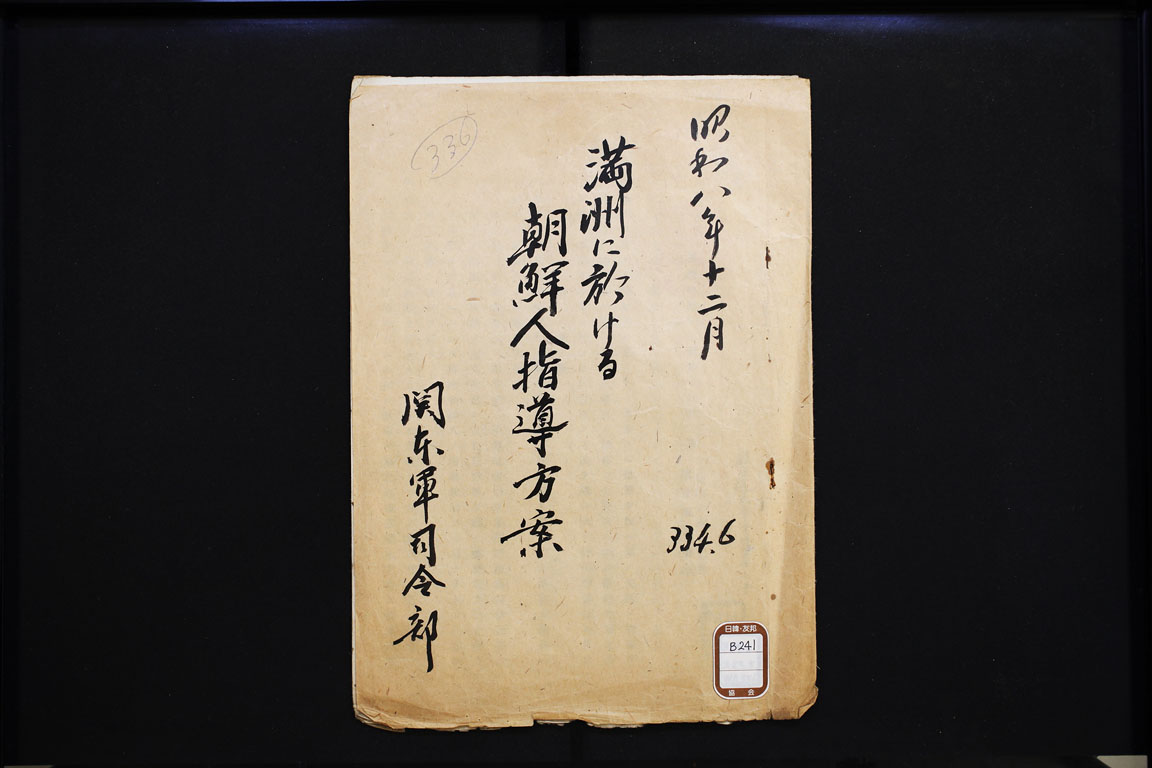 昭和八年十二月
満洲に於ける
朝鮮人指導方案
関东軍司令部
336
334.6
日韓・友邦
B241
協会